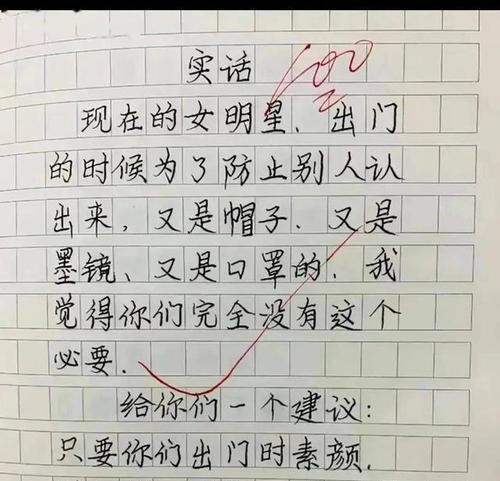 实话
100
现在的女明星、出门
的时候为了防止别人认
出来，又是帽子、又是
墨镜、又是口罩的、我
觉得你们完全没有这个
必要.
给你们一个建议:
只要你们出门时素颜.